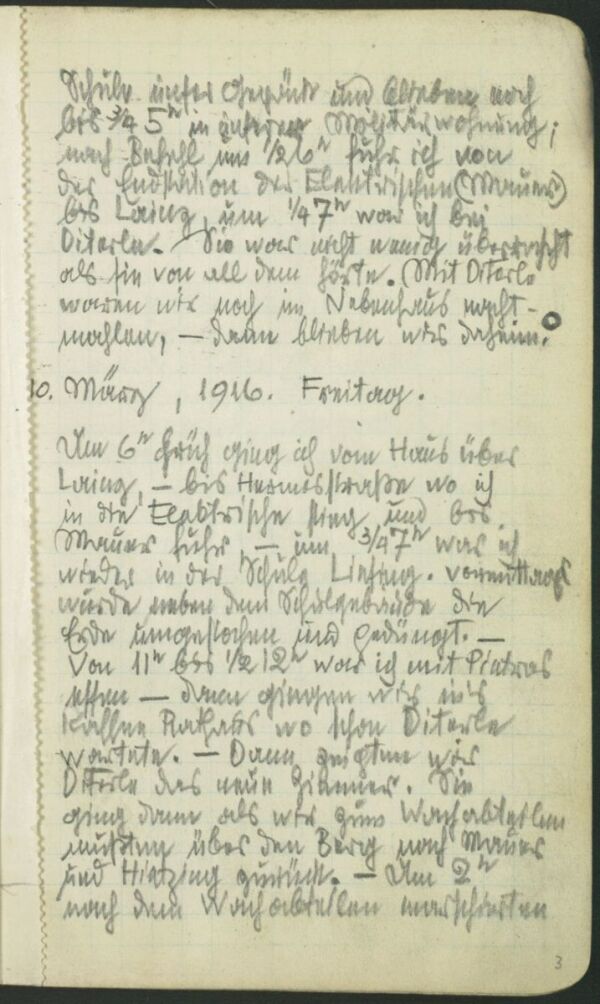 Schule unser Gepäck und blieben noch
bis 3/4 5h in unserer Militärwohnung;
nach Befehl um 1/2 6h fuhr ich von
der Endstation der Elektrischen (Mauer)
bis Lainz, um 1/4 7h war ich bei
Diterle. Sie war nicht wenig überrascht
als sie von all dem hörte. (Mit Diterle
waren wir noch im Nebenhaus nacht-
mahlen, – dann blieben wir daheim.
10. März, 1916. Freitag.
Um 6h früh ging ich vom Haus über
Lainz, – bis Hermesstraße wo ich
in die Elektrische stieg und bis
Mauer fuhr, – um 3/4 7h war ich
wieder in der Schule Liesing. vormittags
wurde neben dem Schulgebäude die
Erde umgestochen und gedüngt. –
Von 11h bis 1/2 12h war ich mit Pietras
essen – dann gingen wir ins
Kaffee Rathaus wo schon Diterle
wartete. – Dann zeigten wir
Diterle das neue Zimmer. Sie
ging dann als wir zum Wachabteilen
mußten über den Berg nach Mauer
und Hietzing zurück. – Um 2h
nach dem Wachabteilen marschierten
3